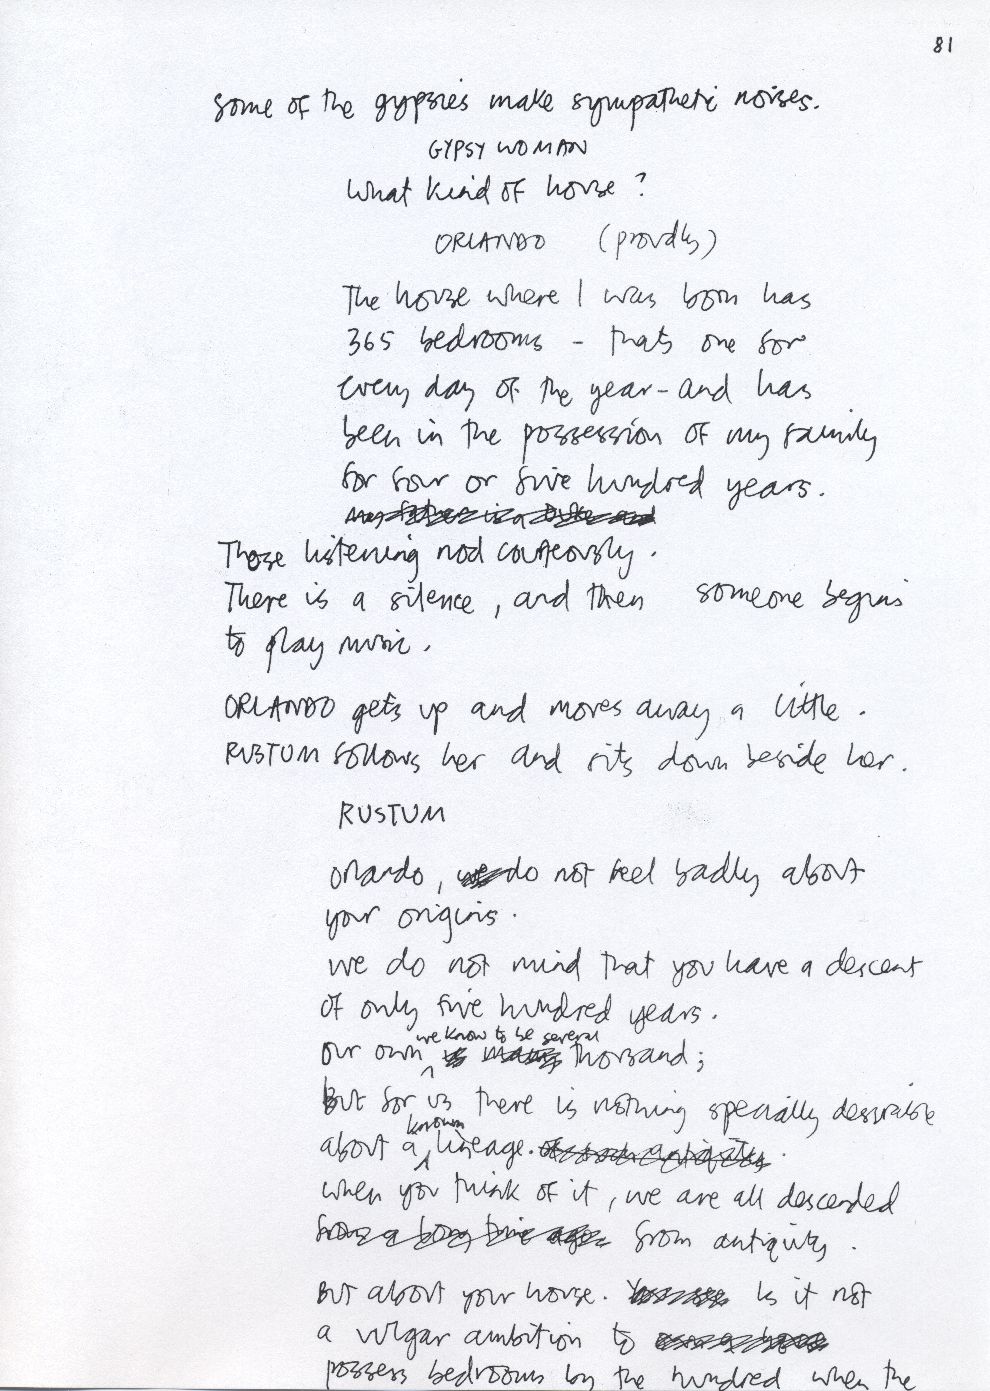 81
Some of the gypsies make sympathetic noises.
GYPSY WOMAN
What kind of house ?
ORLANDO (proudly)
The house where I was born has
365 bedrooms - thats one for
every day of the year - and has
been in the possession of my family
for four or five hundred years.
My father is a Duke and
Those listening nod courteously.
There is a silence, and then someone begins
to play music.
ORLANDO gets up and moves away a little.
RUSTUM follows her and sits down beside her.
RUSTUM
Orlando, we do not feel badly about
your origins.
We do not mind that you have a descent
of only five hundred years.
we know to be several
Our own is many thousand;
But for us there is nothing specially desirable
known
about a lineage. of such antiquity.
When you think of it, we are all descended
from a long time ago from antiquity.
But about your house. Is it not
a vulgar ambition to
possess bedrooms by the hundred when the